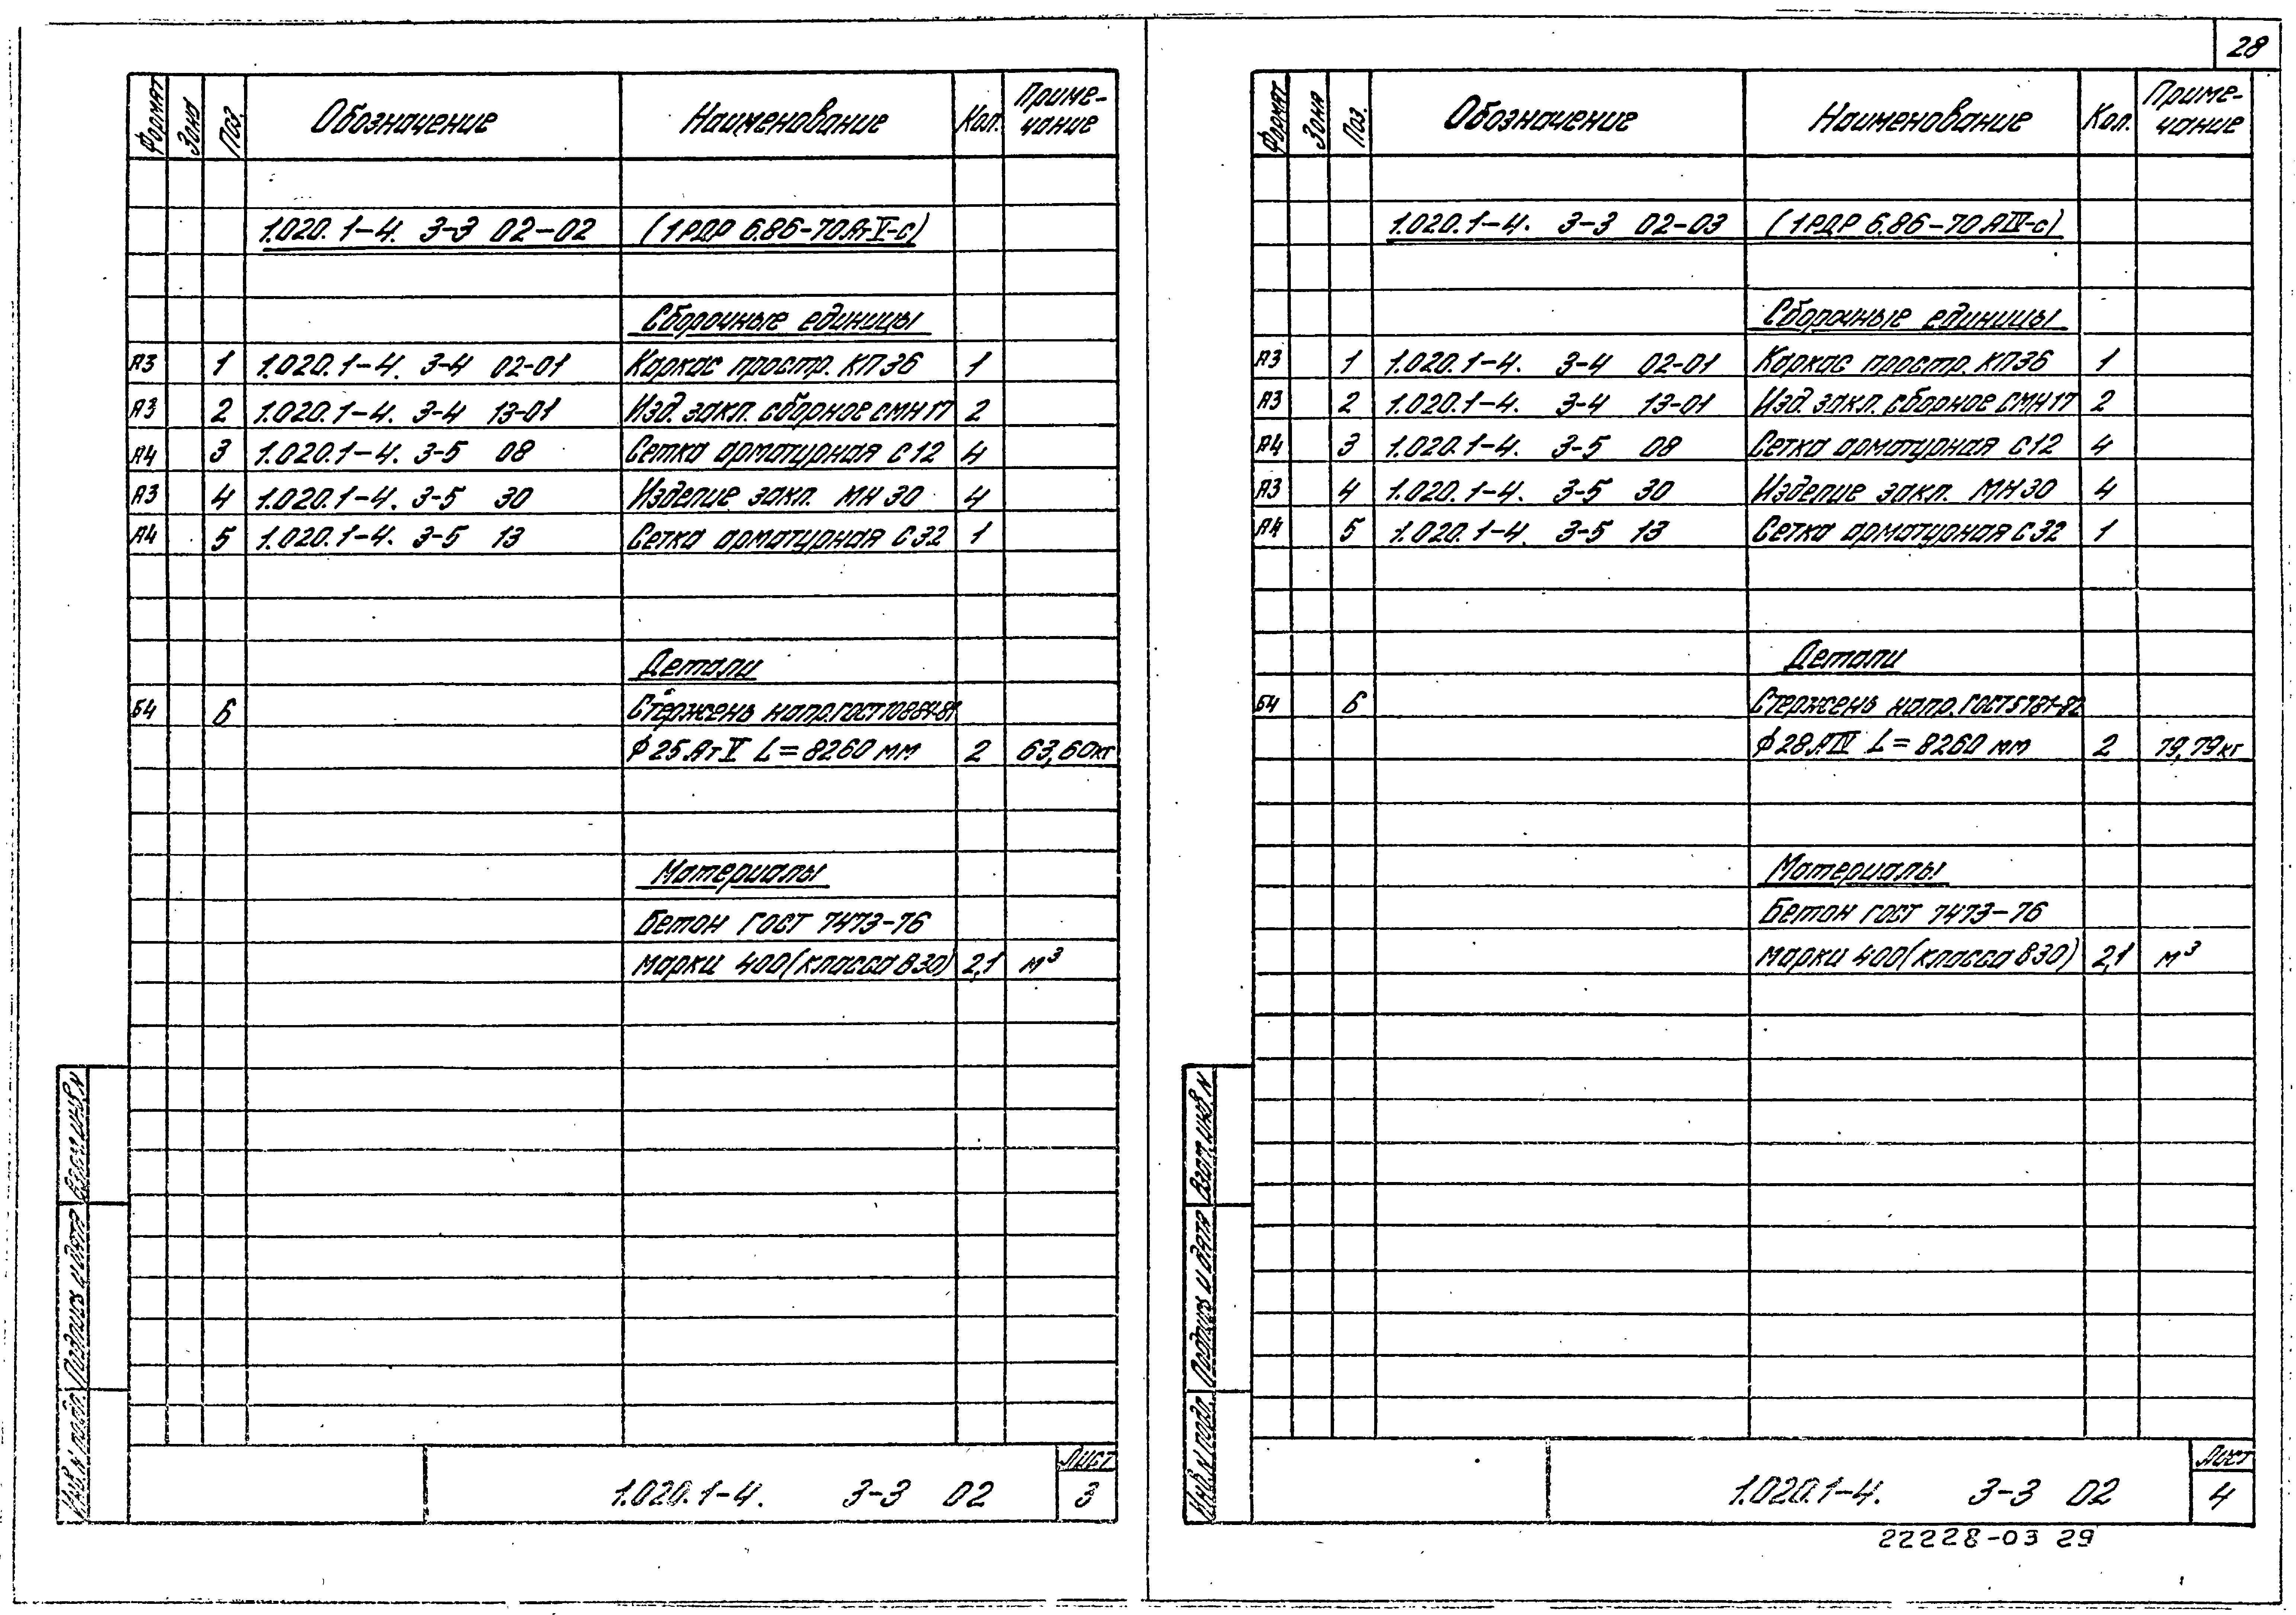 28
Формат Зона Поз. Обозначение Наименование Кол. Приме-
чание
1.020.1-4. 3-3 02-02 (1РДР 6.86-70.АтV-с)
Сборочные единицы
А3 1 1.020.1-4. 3-4 02-01 Каркас простр. КП36 1
А3 2 1.020.1-4. 3-4 13-01 Изд. закл. сборное СМН17 2
А4 3 1.020.1-4. 3-5 08 Сетка арматурная С12 4
А3 4 1.020.1-4. 3-5 30 Изделие закл. МН30 4
А4 5 1.020.1-4. 3-5 13 Сетка арматурная С32 1
Детали
Б4 6 Стержень напр. ГОСТ 10884-81
ϕ25АтV L=8260 мм 2 63,60кг
Материалы
Бетон ГОСТ 7473-76
марки 400 (класса В30) 2,1 м³
Взам. инв. N
Подпись и дата
Инв. N подл.
1.020.1-4. 3-3 02
Лист
3
Формат Зона Поз. Обозначение Наименование Кол. Приме-
чание
1.020.1-4. 3-3 02-03 (1РДР 6.86-70.АIV-с)
Сборочные единицы
А3 1 1.020.1-4. 3-4 02-01 Каркас простр. КП36 1
А3 2 1.020.1-4. 3-4 13-01 Изд. закл. сборное СМН17 2
А4 3 1.020.1-4. 3-5 08 Сетка арматурная С12 4
А3 4 1.020.1-4. 3-5 30 Изделие закл. МН30 4
А4 5 1.020.1-4. 3-5 13 Сетка арматурная С32 1
Детали
Б4 6 Стержень напр. ГОСТ 5781-82
ϕ28АIV L=8260 мм 2 79,79кг
Материалы
Бетон ГОСТ 7473-76
марки 400 (класса В30) 2,1 м³
Взам. инв. N
Подпись и дата
Инв. N подл.
1.020.1-4. 3-3 02
Лист
4
22228-03 29